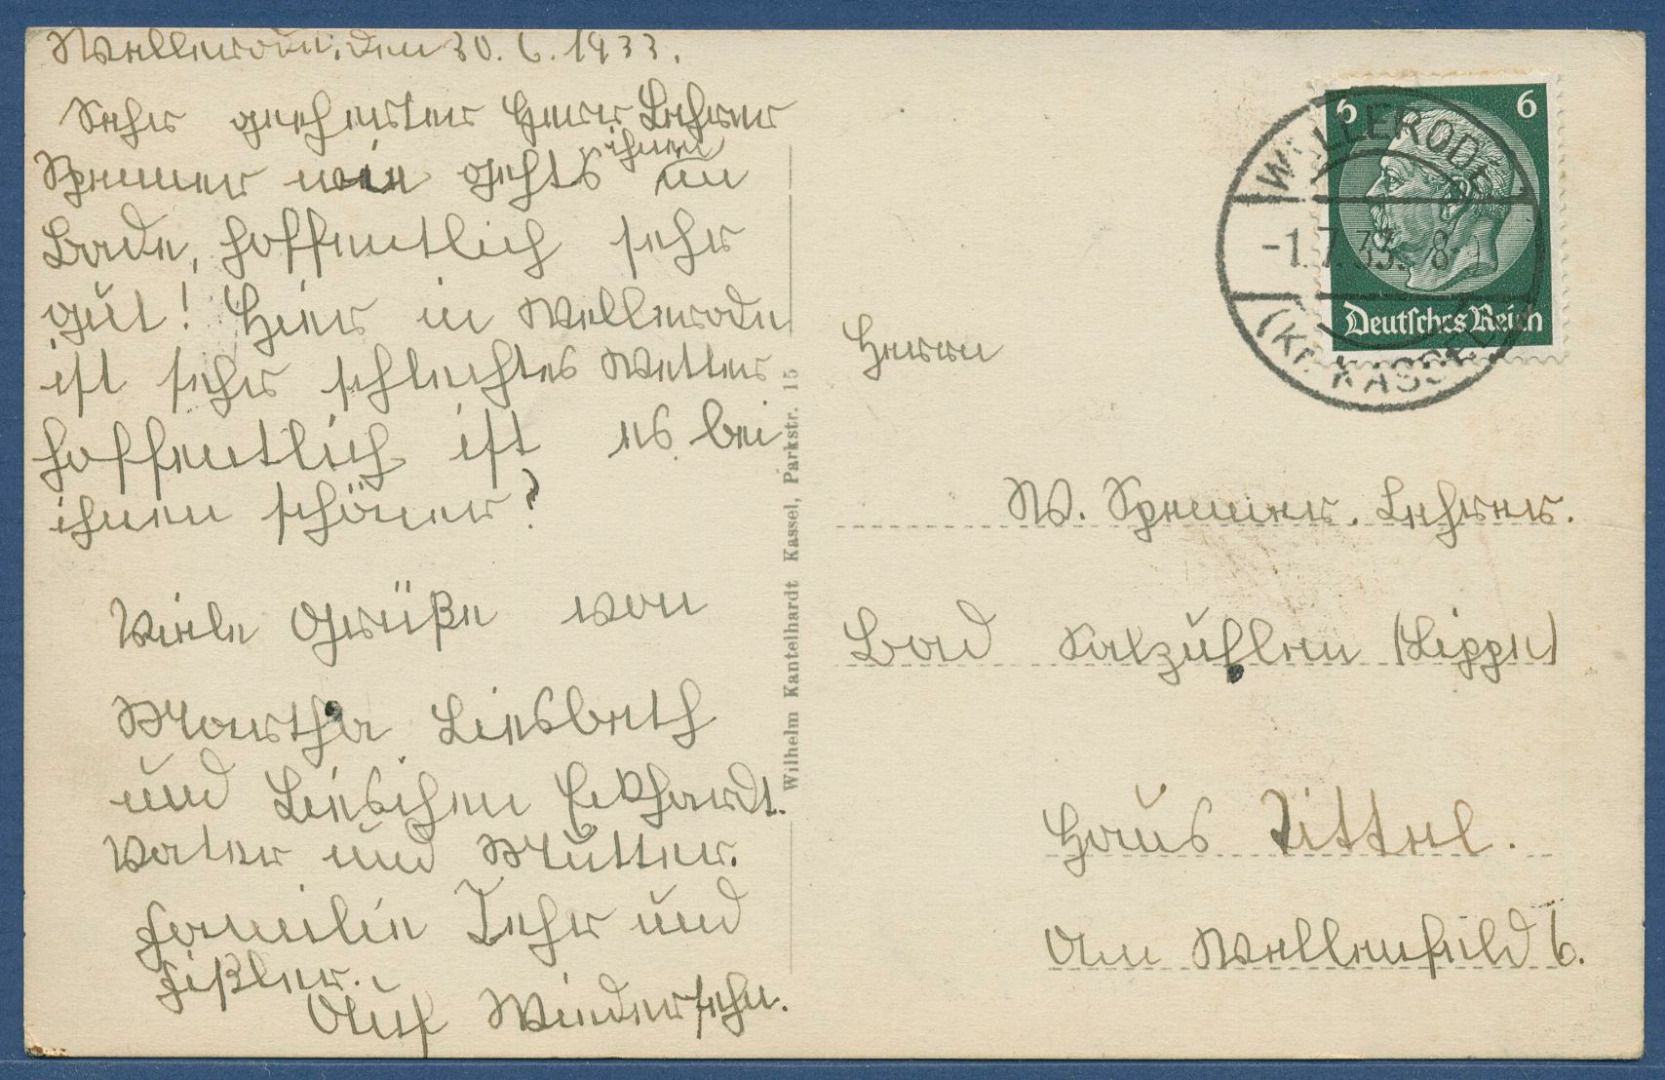 Wellerode, den 30.6.1933.
Sehr geehrter Herr Lehrer
Spemer wie gehts ihnen im
Bade, hoffentlich sehr
gut! Hier in Wellerode
ist sehr schlechtes Wetter
hoffentlich ist es bei
ihnen schöner?
Viele Grüße von
Martha Liesbeth
und Lieschen Eckhardt.
Vater und Mutter.
Familie Fehr und
Fißler.
Auf Wiedersehn.
Wilhelm Kantelhardt Kassel, Parkstr. 15
6 6
Deutsches Reich
WELLERODE
-1.7.33. 8-
(KR. KASSEL)
Herrn
W. Spemer. Lehrer.
Bad Salzuflen (Lippe)
Haus Zittel.
Am Wellenfeld 6.